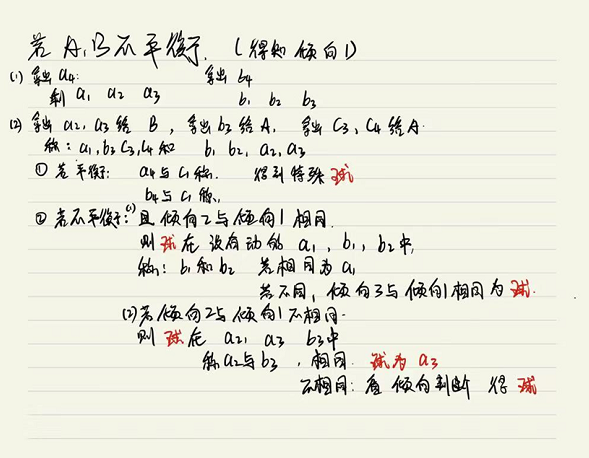 若A,B不平衡. (得知倾向1)
(1) 拿出a4: 拿出b4
剩 a1 a2 a3 b1 b2 b3
(2) 拿出a2,a3给B,拿出b3给A, 拿出C3,C4给A.
称: a1,b3 C3,C4和 b1 b2,a2,a3
① 若平衡: a4与C1称. 得到特殊球
b4与C1称.
② 若不平衡:(1)且倾向2与倾向1相同.
则球在没有动的a1,b1,b2中,
称: b1和b2 若相同为a1
若不同,倾向3与倾向1相同为球.
(2)若倾向2与倾向1不相同.
则球在 a2, a3 b3中
称a2与b3 ,相同. 球为a3
不相同: 看倾向判断 得球